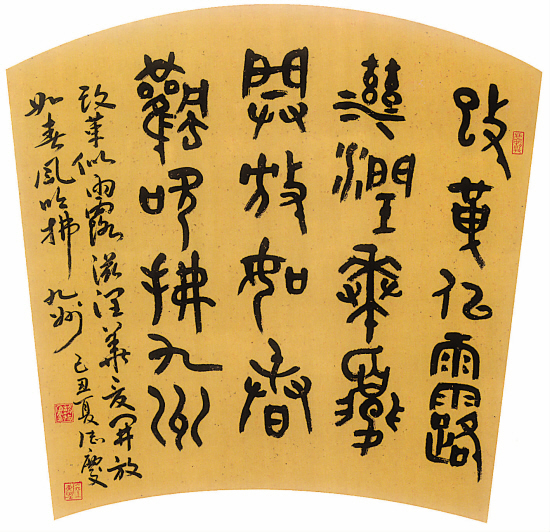 改革似雨露
滋潤華夏
開放如春
風吹拂九州
改革似雨露滋潤華夏開放
如春風吹拂九州
己丑夏德慶